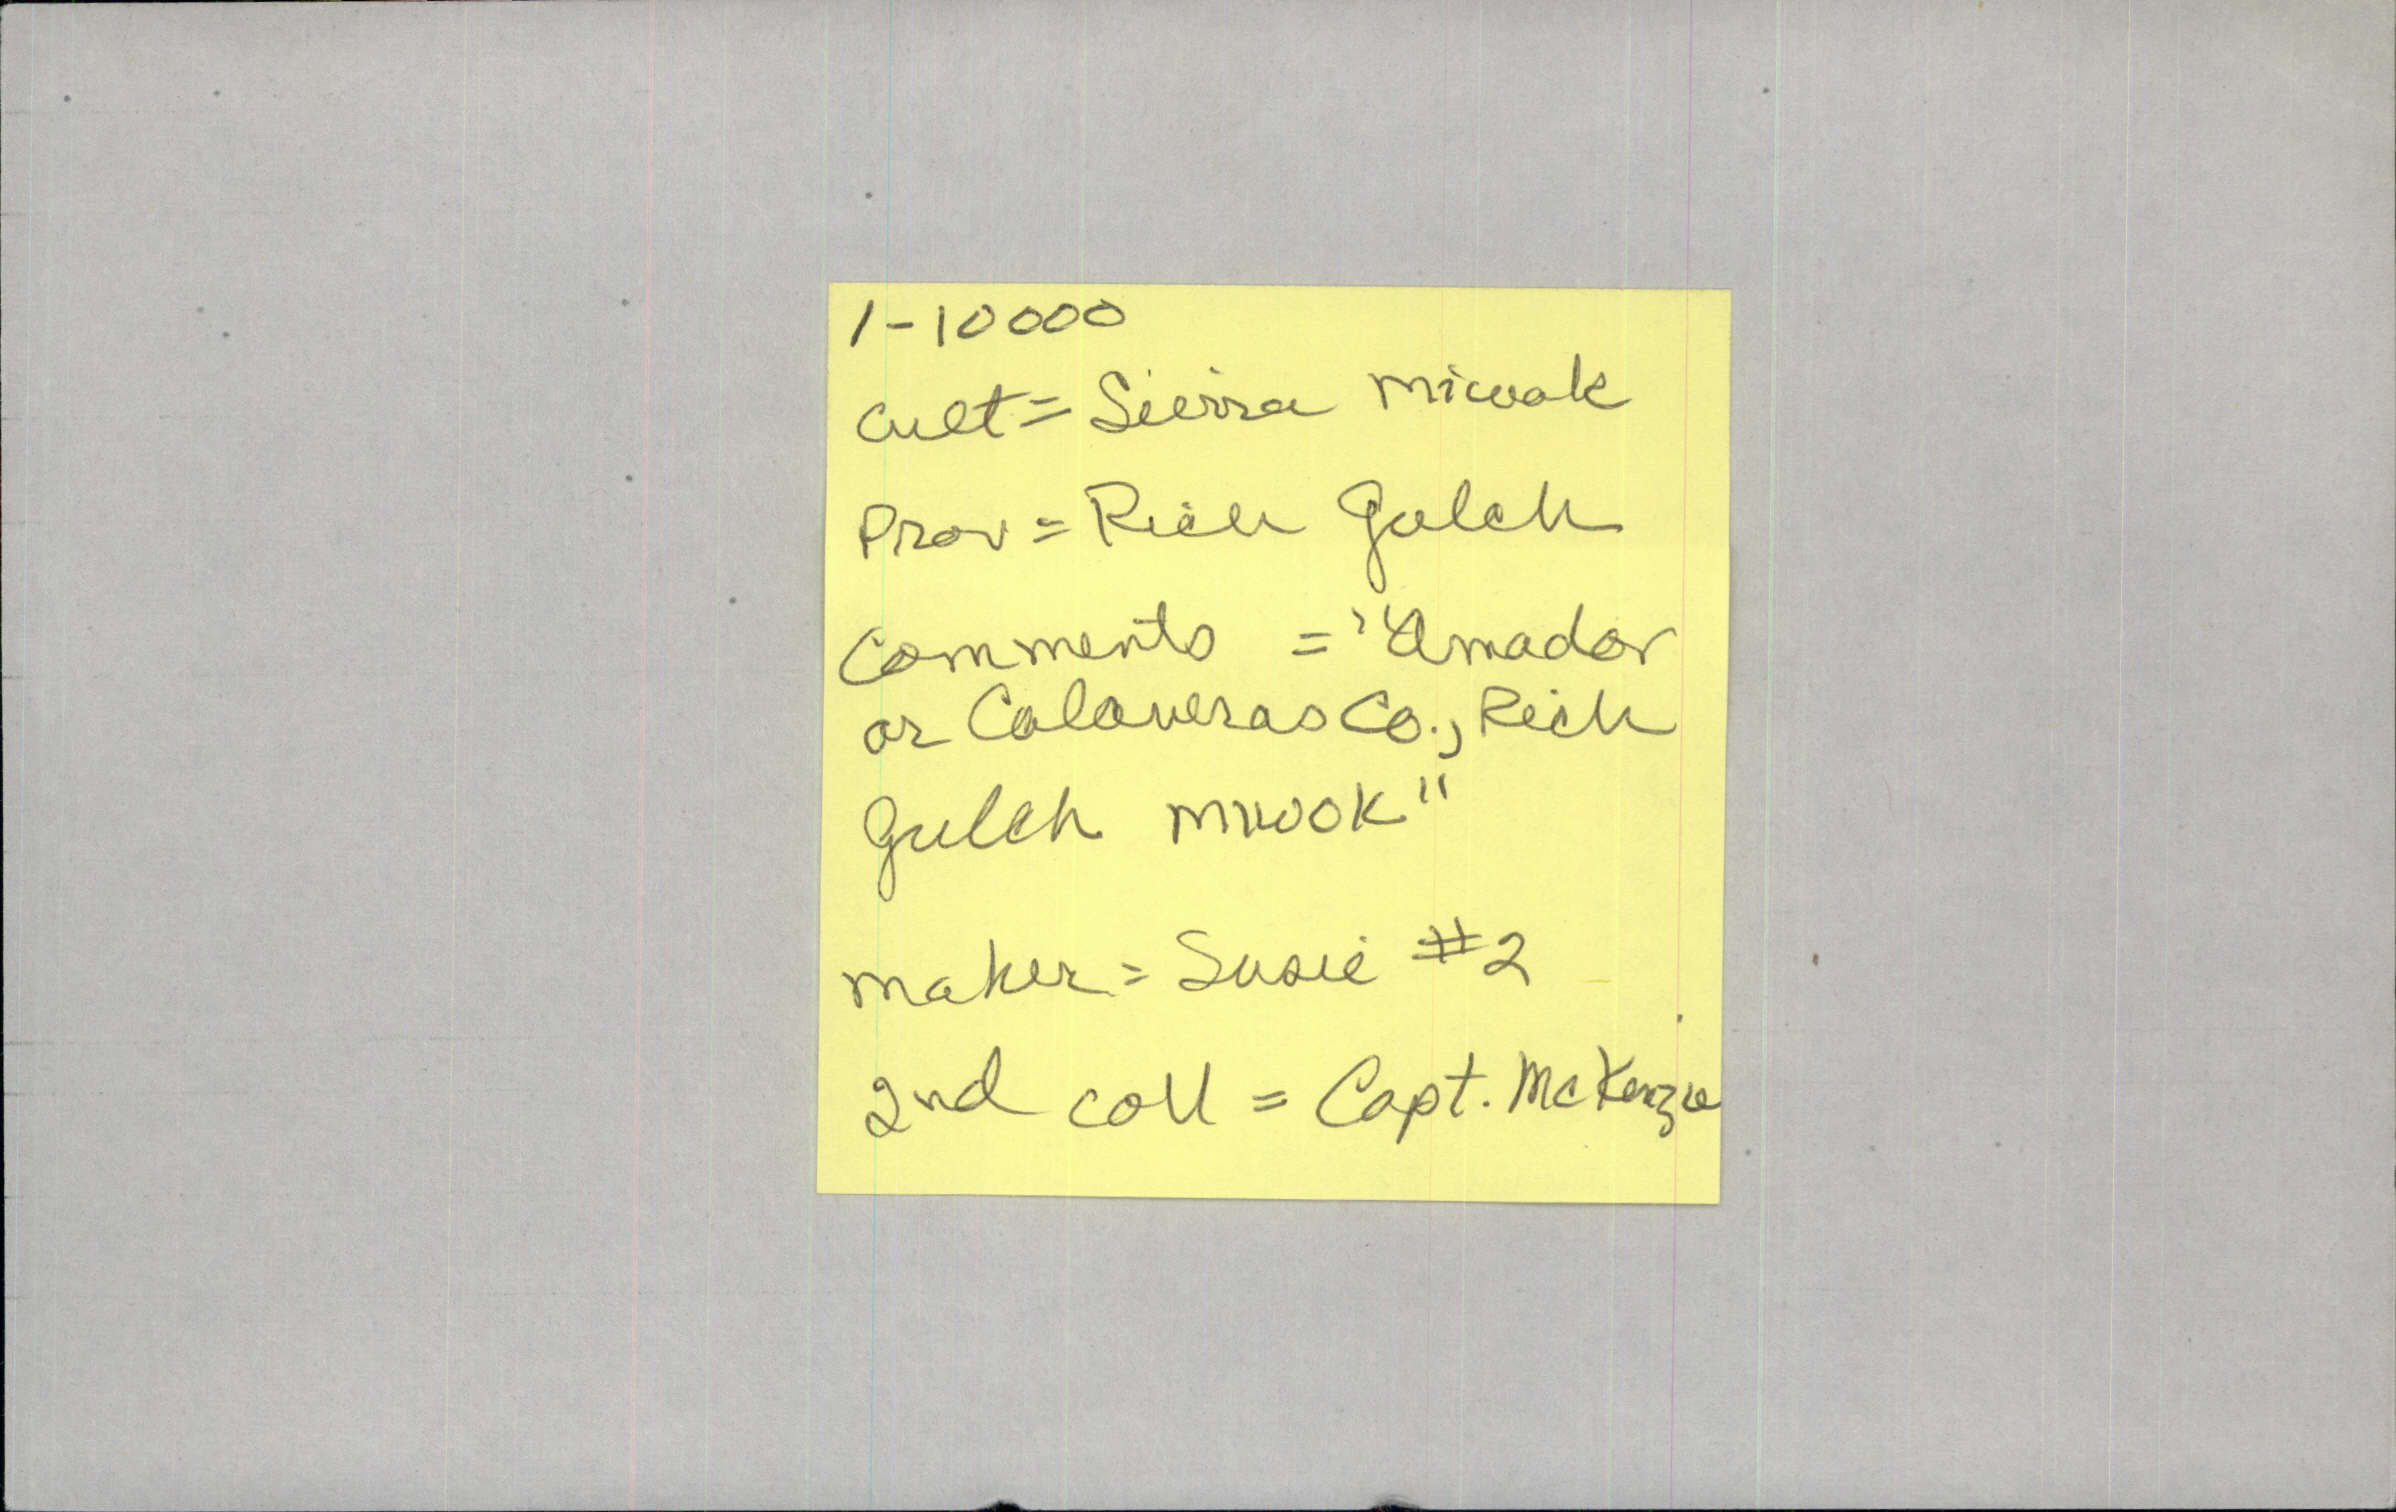 1-10000
Cult = Sierra Miwok
Prov = Rich Gulch
Comments = "Amador
or Calaveras Co., Rich
Gulch Miwok"
maker = Susie #2
2nd coll = Capt. McKenzie